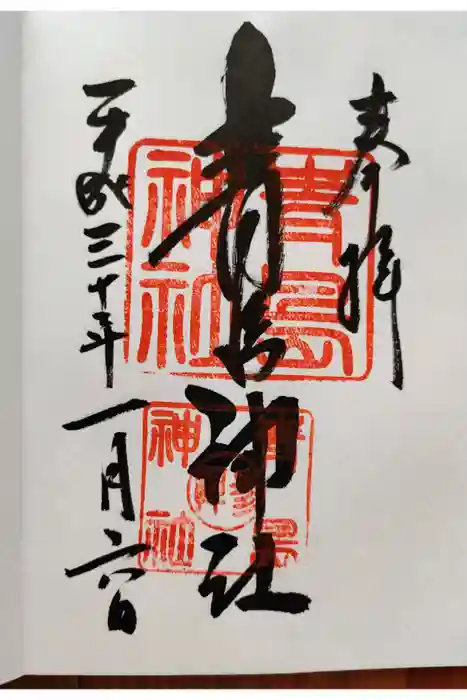 奉拝
青島神社
青島
神社
青島
神社
平成三十年一月六日